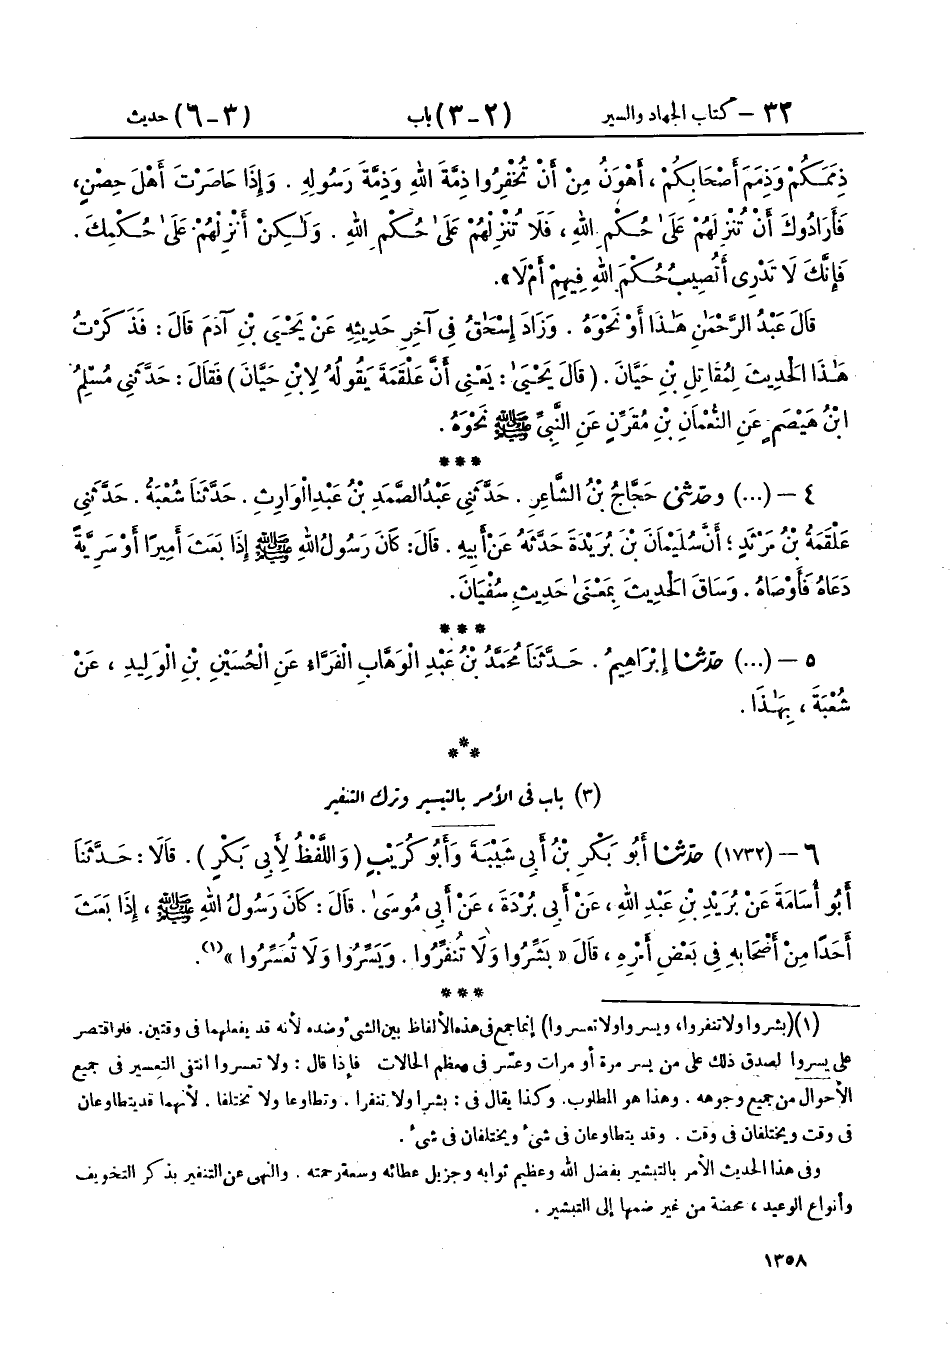 ٣٢ – كتاب الجهاد والسير (٢-٣) باب (٣-٦) حديث
ذِمَمَكُمْ وَذِمَمَ أَصْحَابِكُمْ، أَهْوَنُ مِنْ أَنْ تُخْفِرُوا ذِمَّةَ اللهِ وَذِمَّةَ رَسُولِهِ. وَإِذَا حَاصَرْتَ أَهْلَ حِصْنٍ،
فَأَرَادُوكَ أَنْ تُنْزِلَهُمْ عَلَىٰ حُكْمِ اللهِ، فَلَا تُنْزِلْهُمْ عَلَىٰ حُكْمِ اللهِ. وَلَـٰكِنْ أَنْزِلْهُمْ عَلَىٰ حُكْمِكَ.
فَإِنَّكَ لَا تَدْرِى أَتُصِيبُ حُكْمَ اللهِ فِيهِمْ أَمْ لَا».
قَالَ عَبْدُ الرَّحْمَـٰنِ هَـٰذَا أَوْ نَحْوَهُ. وَزَادَ إِسْحَاقُ فِى آخِرِ حَدِيثِهِ عَنْ يَحْيَىٰ بْنِ آدَمَ قَالَ: فَذَكَرْتُ
هَـٰذَا الْحَدِيثَ لِمُقَاتِلِ بْنِ حَيَّانَ. (قَالَ يَحْيَىٰ: يَعْنِى أَنَّ عَلْقَمَةَ يَقُولُهُ لِابْنِ حَيَّانَ) فَقَالَ: حَدَّثَنِى مُسْلِمُ
ابْنُ هَيْصَمٍ عَنِ النُّعْمَانِ بْنِ مُقَرِّنٍ عَنِ النَّبِىِّ ﷺ نَحْوَهُ.
***
٤ – (...) وحدّثنى حَجَّاجُ بْنُ الشَّاعِرِ. حَدَّثَنِى عَبْدُ الصَّمَدِ بْنُ عَبْدِ الْوَارِثِ. حَدَّثَنَا شُعْبَةُ. حَدَّثَنِى
عَلْقَمَةُ بْنُ مَرْثَدٍ؛ أَنَّ سُلَيْمَانَ بْنَ بُرَيْدَةَ حَدَّثَهُ عَنْ أَبِيهِ. قَالَ: كَانَ رَسُولُ اللهِ ﷺ إِذَا بَعَثَ أَمِيرًا أَوْ سَرِيَّةً
دَعَاهُ فَأَوْصَاهُ. وَسَاقَ الْحَدِيثَ بِمَعْنَىٰ حَدِيثِ سُفْيَانَ.
***
٥ – (...) حدّثنا إِبْرَاهِيمُ. حَدَّثَنَا مُحَمَّدُ بْنُ عَبْدِ الْوَهَّابِ الْفَرَّاءُ عَنِ الْحُسَيْنِ بْنِ الْوَلِيدِ، عَنْ
شُعْبَةَ، بِهَـٰذَا.
***
(٣) باب فى الأمر بالتيسير وترك التنفير
٦ – (١٧٣٢) حدّثنا أَبُو بَكْرِ بْنُ أَبِى شَيْبَةَ وَأَبُو كُرَيْبٍ (وَاللَّفْظُ لِأَبِى بَكْرٍ). قَالَا: حَدَّثَنَا
أَبُو أُسَامَةَ عَنْ بُرَيْدِ بْنِ عَبْدِ اللهِ، عَنْ أَبِى بُرْدَةَ، عَنْ أَبِى مُوسَىٰ. قَالَ: كَانَ رَسُولُ اللهِ ﷺ، إِذَا بَعَثَ
أَحَدًا مِنْ أَصْحَابِهِ فِى بَعْضِ أَمْرِهِ، قَالَ «بَشِّرُوا وَلَا تُنَفِّرُوا. وَيَسِّرُوا وَلَا تُعَسِّرُوا»(١).
***
(١)(بشروا ولا تنفروا، ويسروا ولا تعسروا) إنما جمع فى هذه الألفاظ بين الشىء وضده لأنه قد يفعلهما فى وقتين. فلو اقتصر
على يسروا لصدق ذلك على من يسر مرة أو مرات وعسّر فى معظم الحالات فإذا قال: ولا تعسروا انتفى التعسير فى جميع
الأحوال من جميع وجوهه. وهذا هو المطلوب. وكذا يقال فى: بشرا ولا تنفرا. وتطاوعا ولا تختلفا. لأنهما قد يتطاوعان
فى وقت ويختلفان فى وقت. وقد يتطاوعان فى شىء ويختلفان فى شىء.
وفى هذا الحديث الأمر بالتبشير بفضل الله وعظيم ثوابه وجزيل عطائه وسعة رحمته. والنهى عن التنفير بذكر التخويف
وأنواع الوعيد، محضة من غير ضمها إلى التبشير.
١٣٥٨